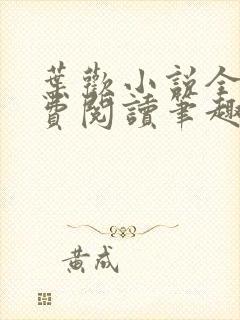 葉歡小說全
費閱讀筆趣
黃成